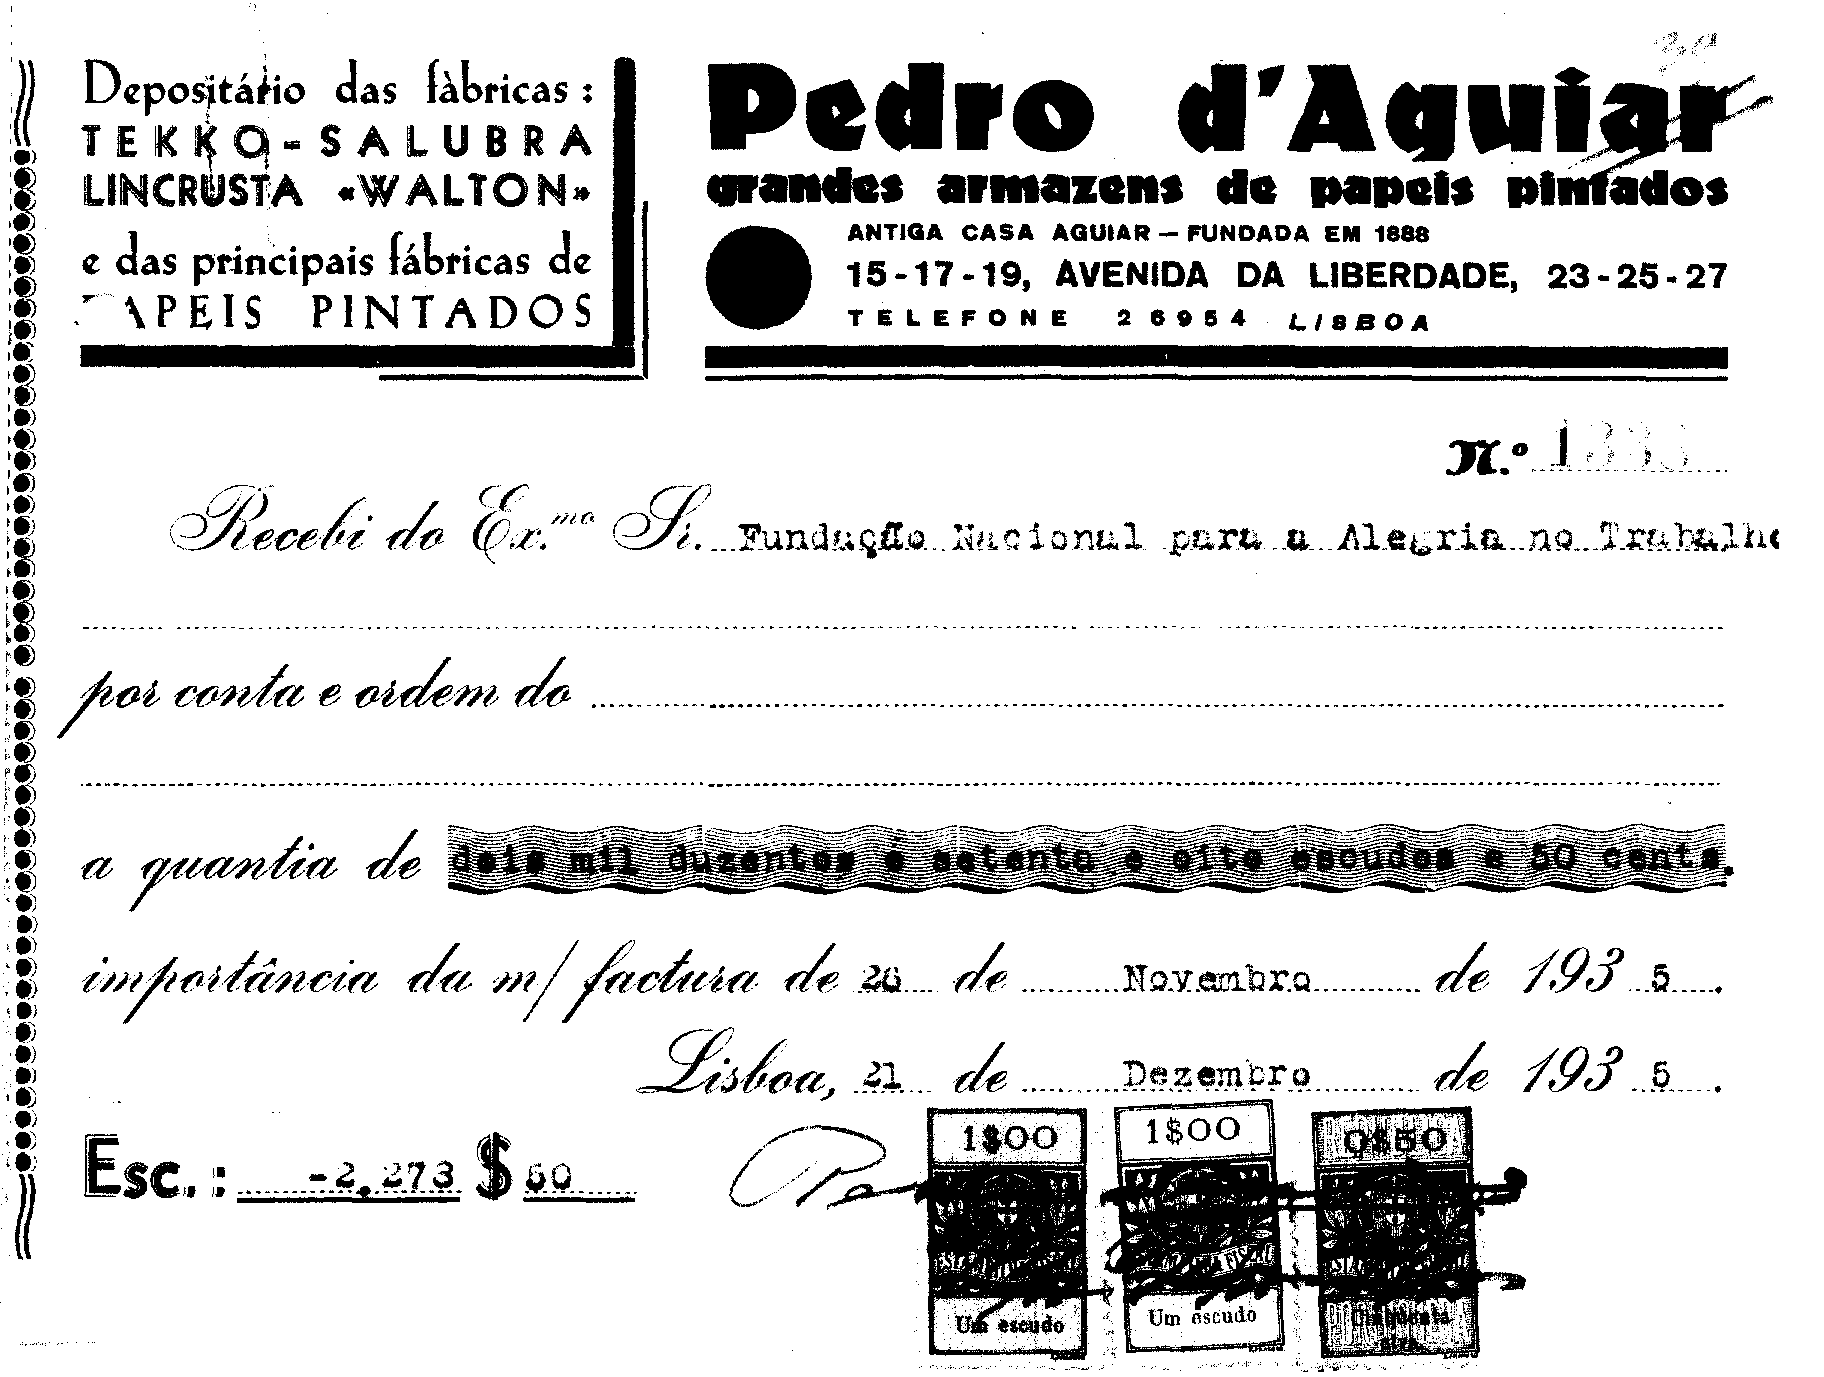 Depositário das fàbricas:
TEKKO-SALUBRA
LINCRUSTA «WALTON»
e das principais fábricas de
PAPEIS PINTADOS
Pedro d'Aguiar
grandes armazens de papeis pintados
ANTIGA CASA AGUIAR — FUNDADA EM 1888
15-17-19, AVENIDA DA LIBERDADE, 23-25-27
TELEFONE 26954 LISBOA
N.º
Recebi do Ex.mo Sr. Fundação Nacional para a Alegria no Trabalho
por conta e ordem do
a quantia de dois mil duzentos e setenta e oito escudos e 50 cents.
importância da m/ factura de 26 de Novembro de 1935.
Lisboa, 21 de Dezembro de 1935.
Esc.: -2.278$50
1$00 1$00 0$50
Um escudo Um escudo